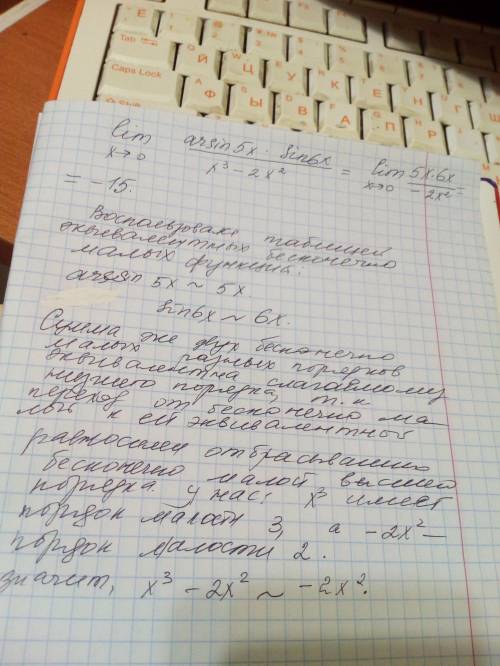 Tab
Й Ц У К Е Н Г
Caps Lock
Ф Ы В А П Р
lim arsin5x · sin6x / x³ - 2x² = lim 5x·6x / -2x²
x→0 x→0
= -15.
таблицей
эквивалентных бесконечно
малых функций:
arsin 5x ~ 5x.
sin6x ~ 6x.
Сумма же двух бесконечно
малых разных порядков
эквивалентна слагаемому
низшего порядка, т.к
переход от бесконечно ма-
лой к ей эквивалентной
равносилен отбрасыванию
бесконечно малой высшего
порядка. У нас: x³ имеет
порядок малости 3, а -2x² —
порядок малости 2.
значит, x³ - 2x² ~ -2x².